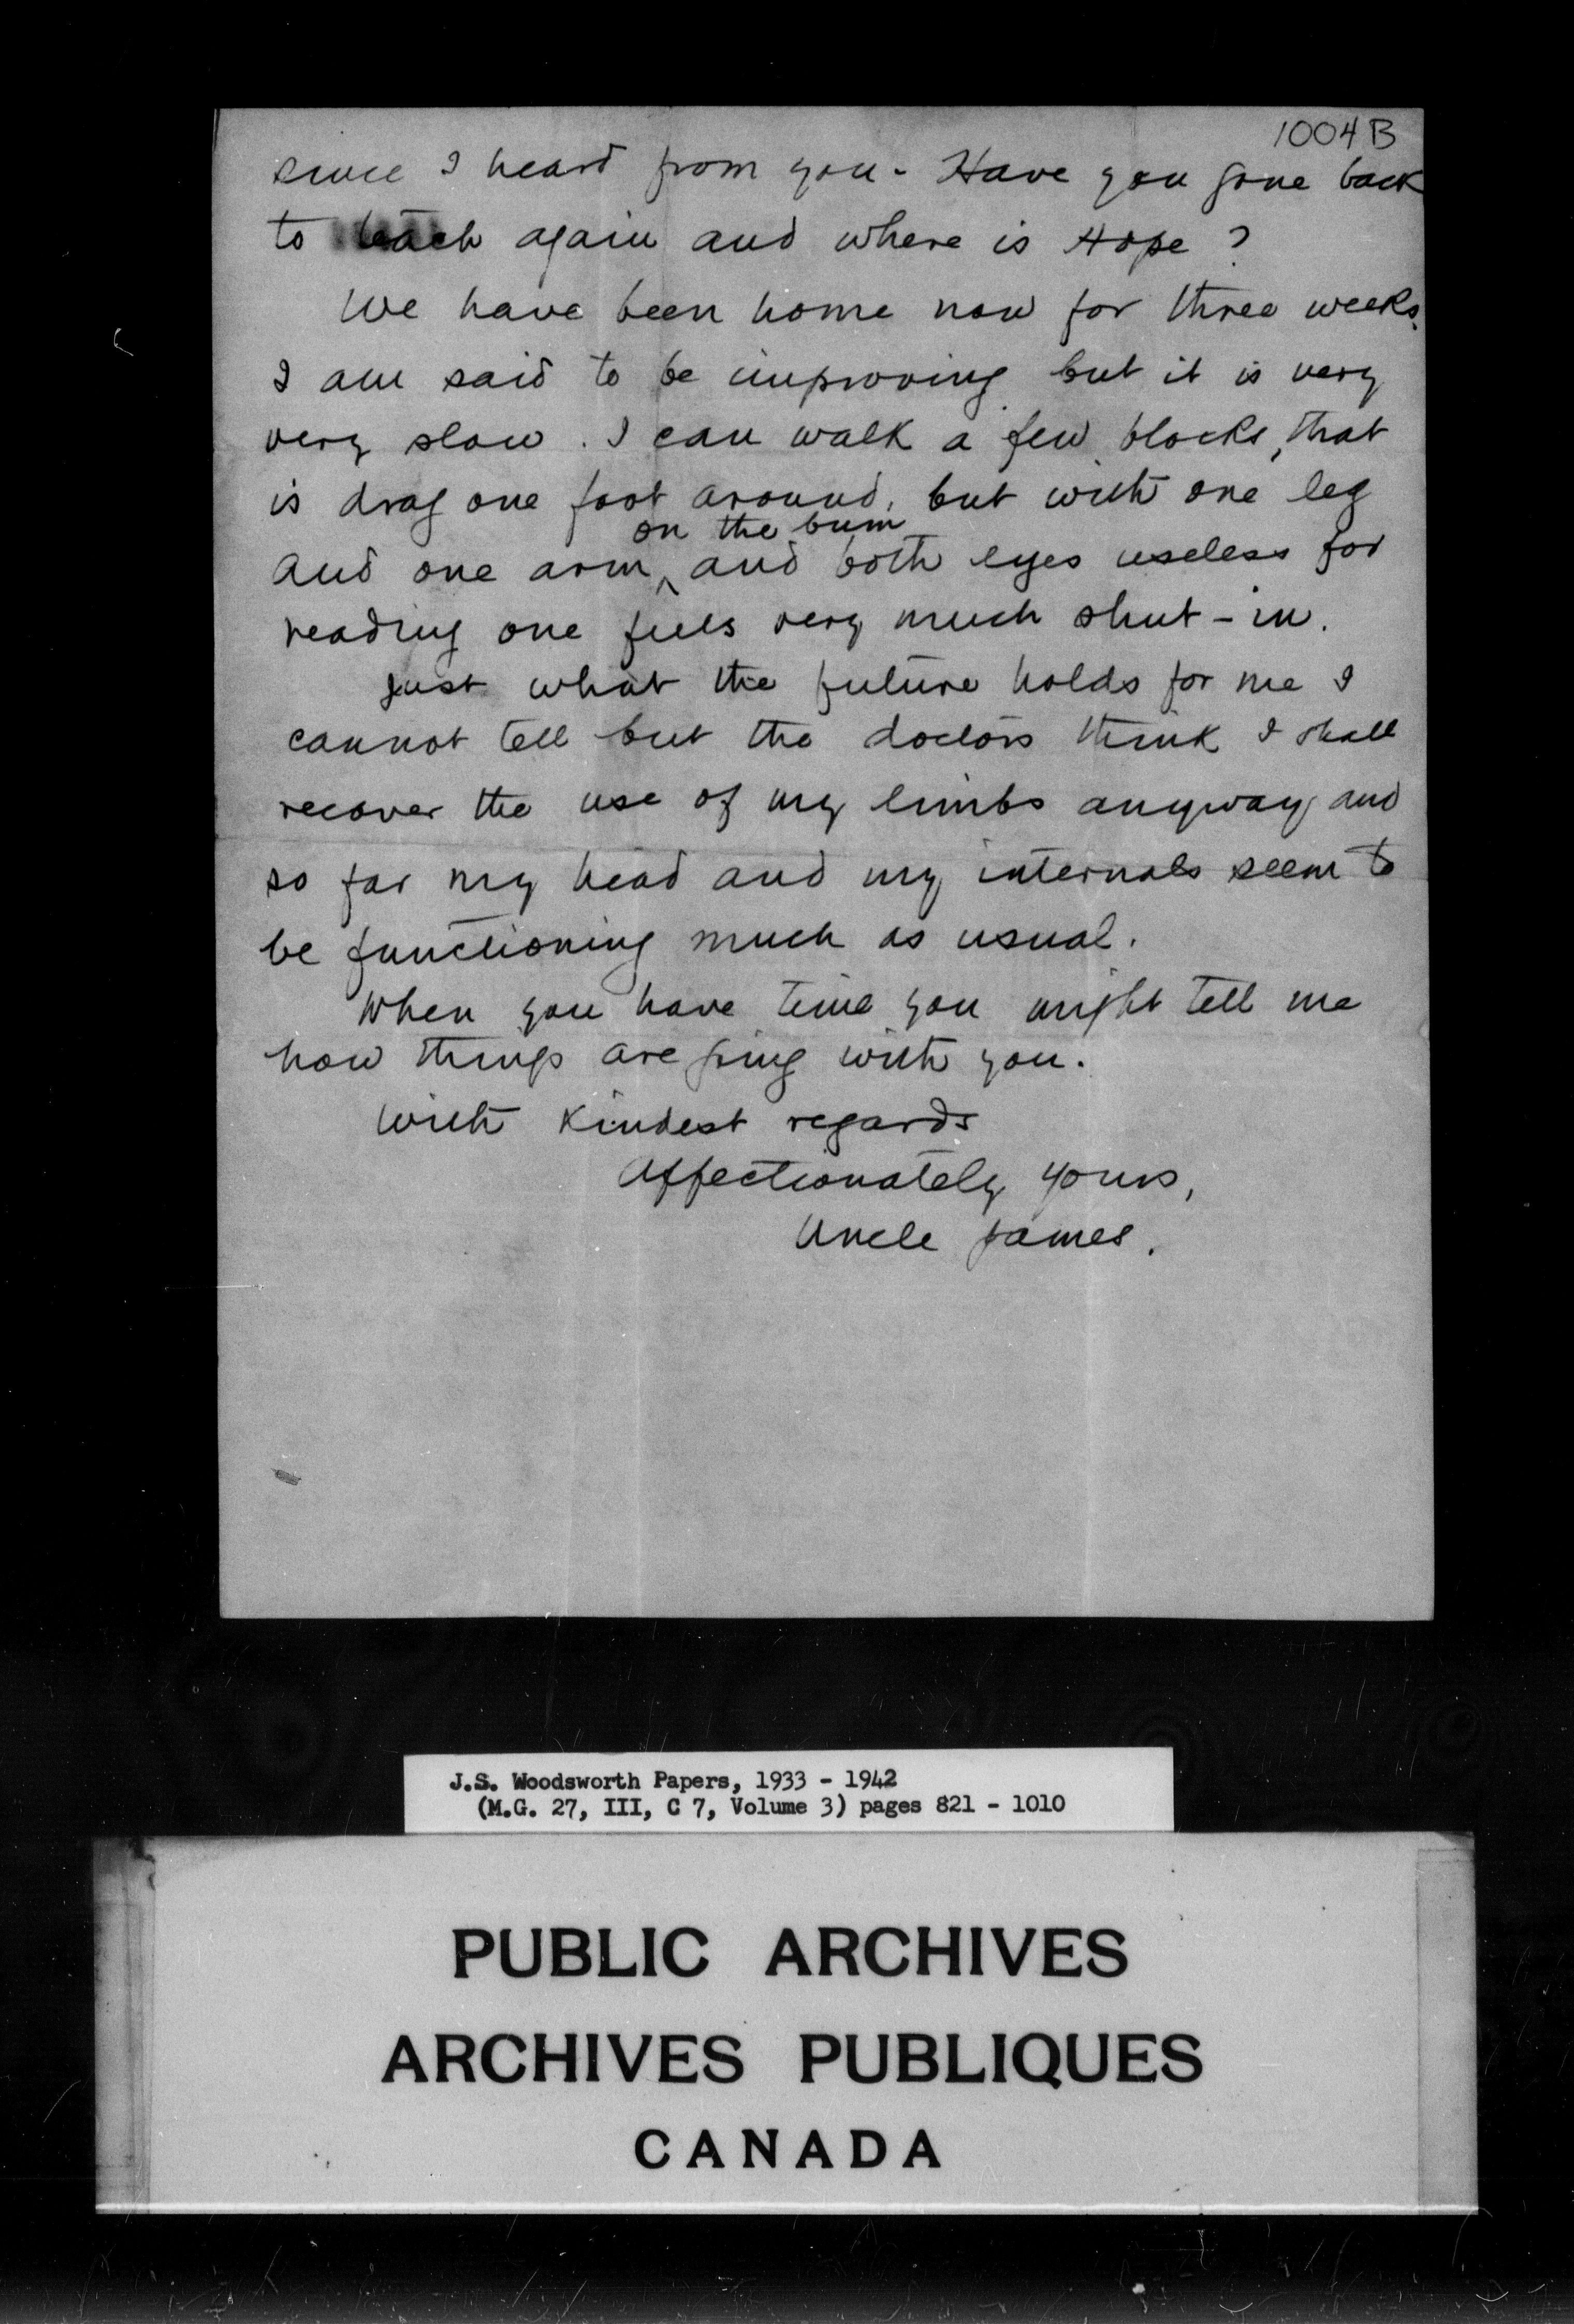 1004B
since I heard from you - Have you gone back
to teach again and where is Hope ?
We have been home now for three weeks.
I am said to be improving but it is very
very slow. I can walk a few blocks, that
is drag one foot around, but with one leg
on the bum
and one arm ^ and both eyes useless for
reading one feels very much shut-in.
Just what the future holds for me I
cannot tell but the doctors think I shall
recover the use of my limbs anyway and
so far my head and my internals seem to
be functioning much as usual.
When you have time you might tell me
how things are going with you.
With kindest regards
Affectionately yours,
Uncle James.
J.S. Woodsworth Papers, 1933 - 1942
(M.G. 27, III, C 7, Volume 3) pages 821 - 1010
PUBLIC ARCHIVES
ARCHIVES PUBLIQUES
CANADA